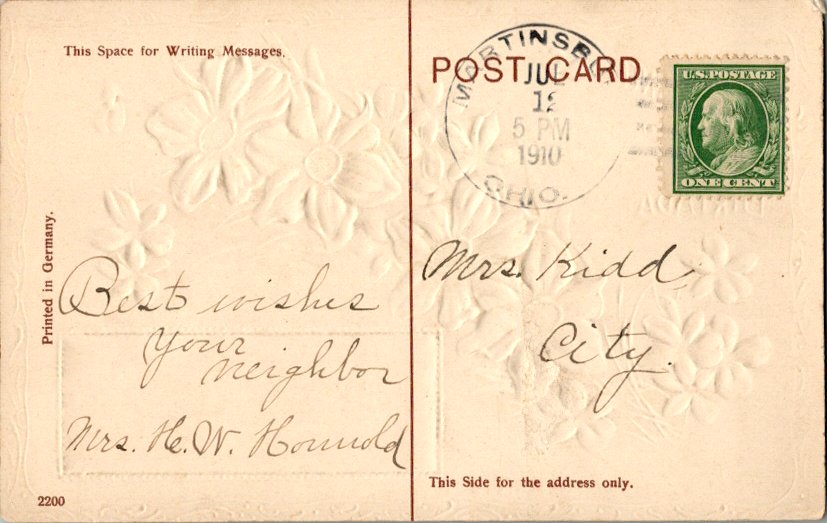 This Space for Writing Messages.
POST CARD
JUL
12
5 PM
1910
OHIO.
U.S. POSTAGE
ONE CENT
Printed in Germany.
Best wishes
Your
neighbor
Mrs. H. W.
Mrs. Kidd
City.
This Side for the address only.
2200